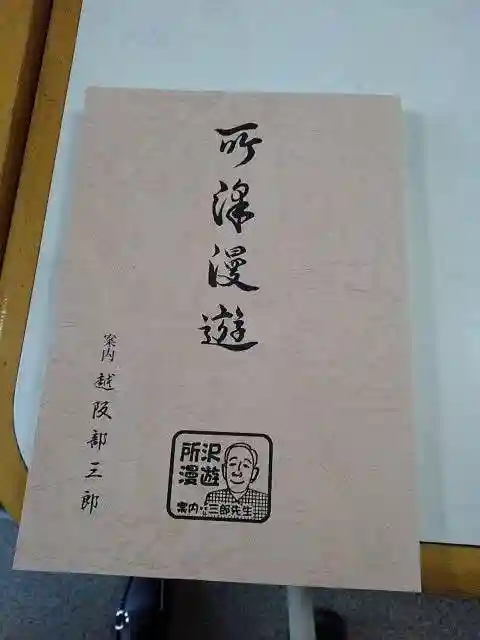 所澤漫遊
案内 越阪部三郎
所沢
漫遊
案内は三郎先生